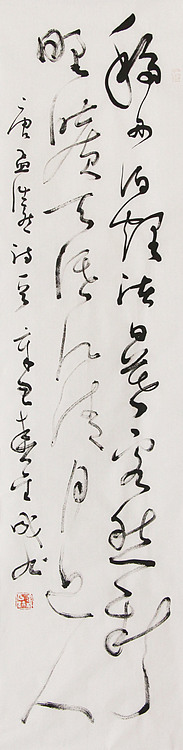 移舟泊煙渚日暮客愁新
野曠天低樹江清月近人
唐孟浩然詩 辛丑春